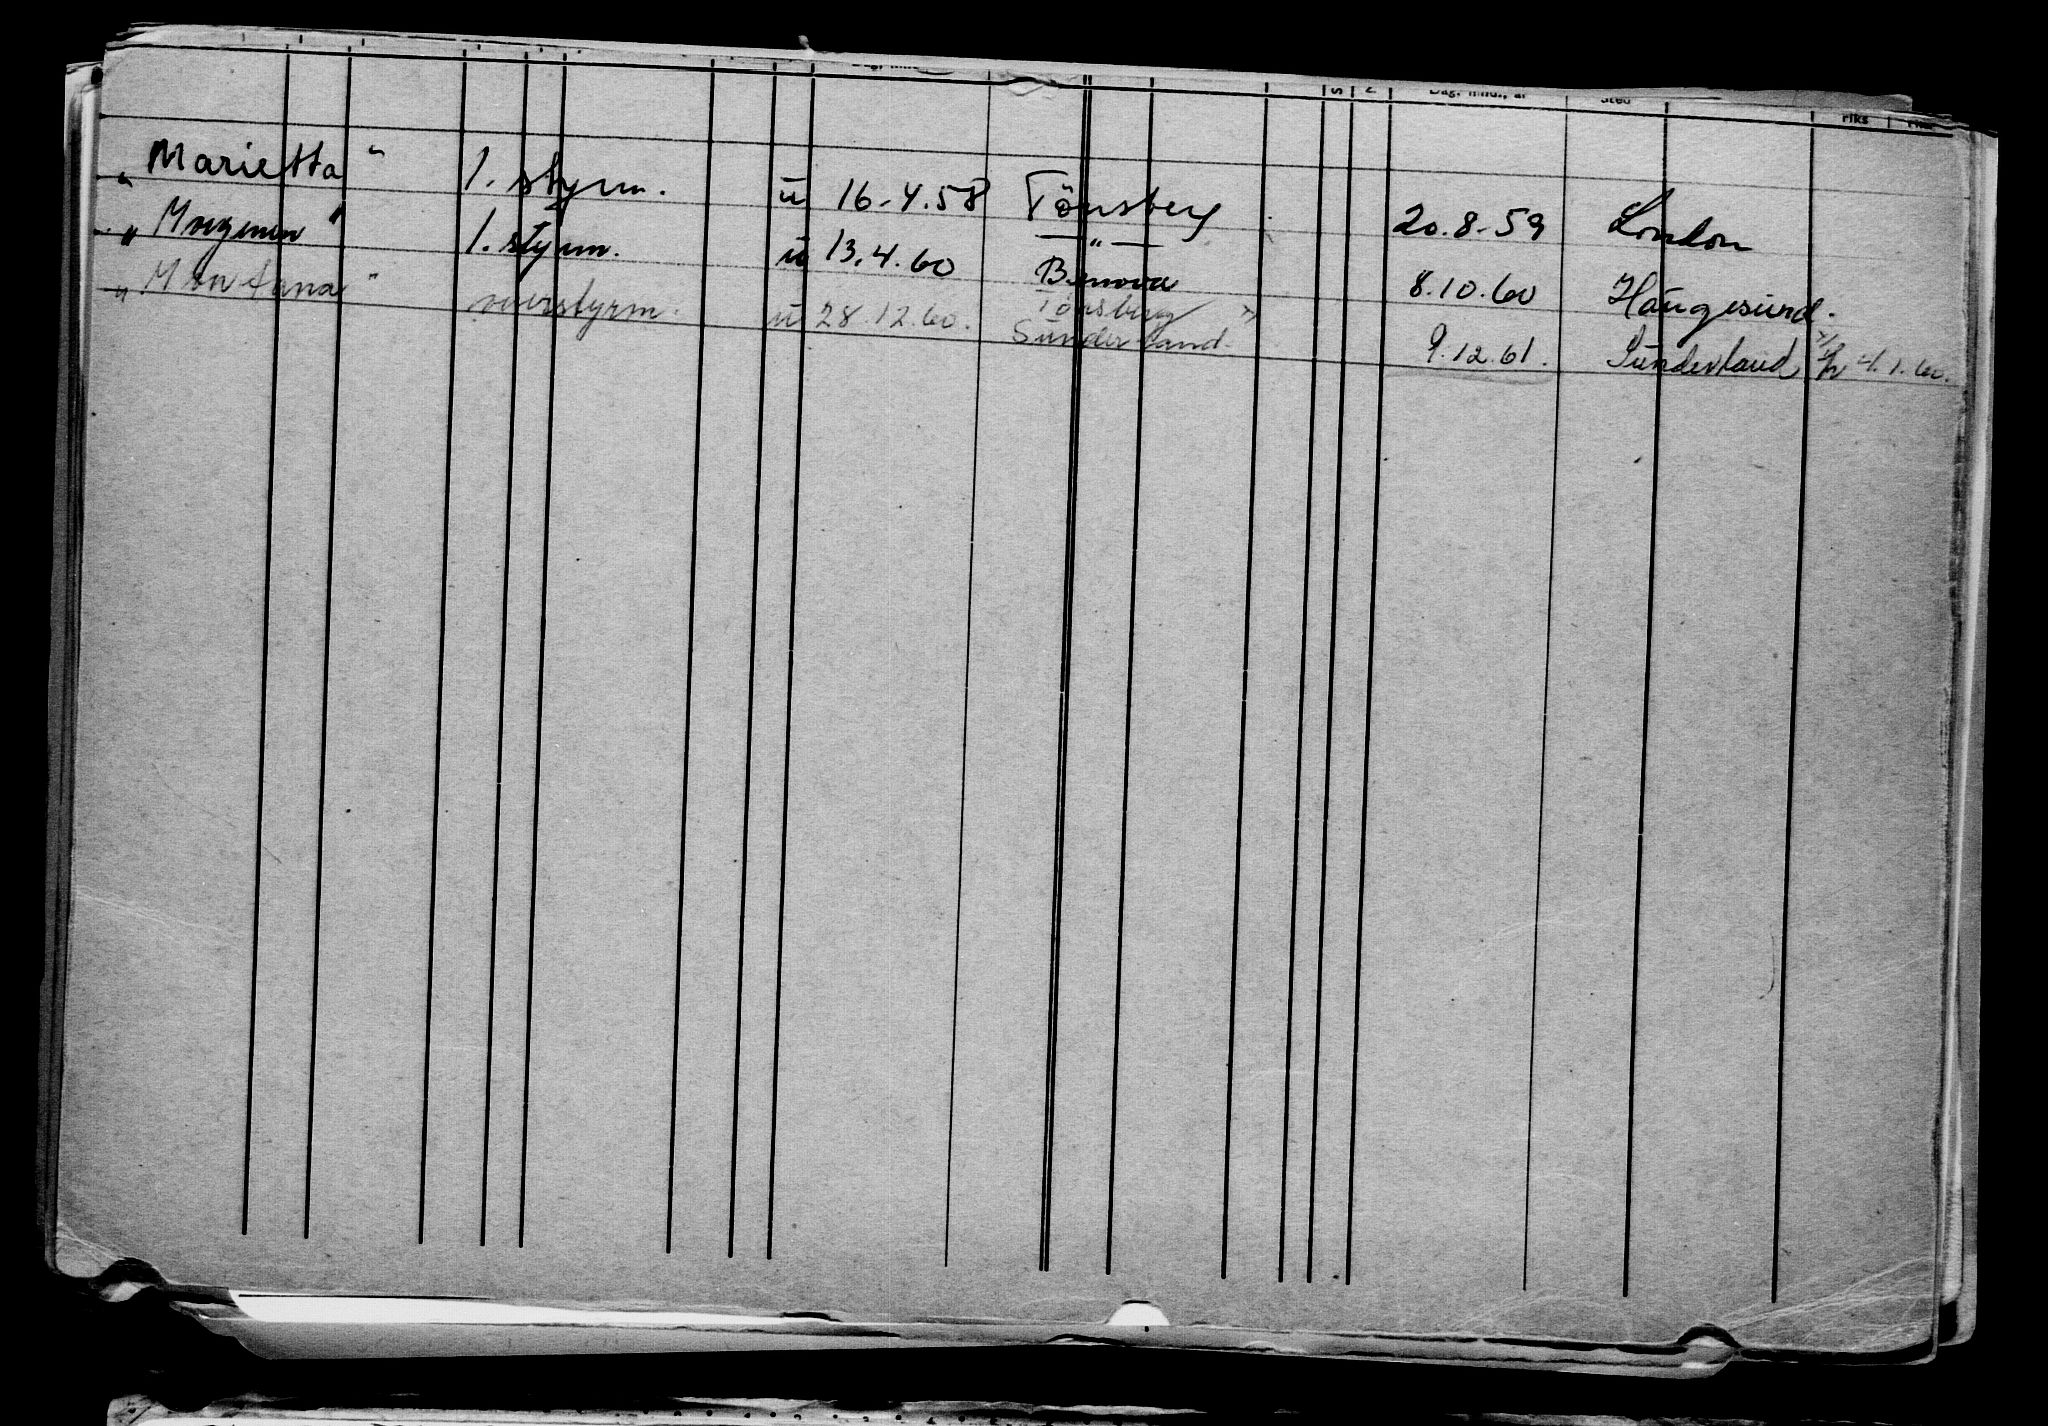 Dag, mnd., år Sted riks riks
„ Marietta " 1. styrm. ü 16.4.58 Tönsberg 20.8.59 London
— " —
„ " 1. styrm. ü 13.4.60 8.10.60 Haugesund.
Tönsberg
„ Montana " overstyrm. ü 28.12.60. Sunderland. 9.12.61. Sunderland 4.1.60.